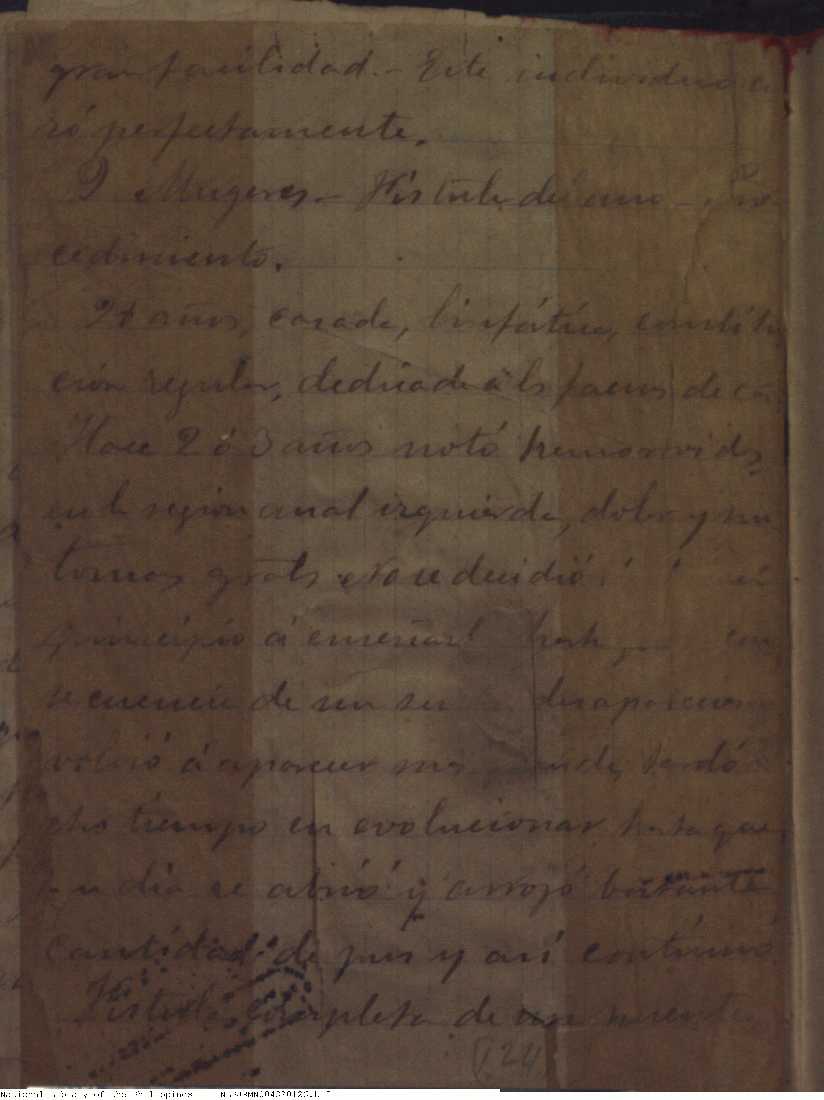 gran facilidad.- Este individuo cu
ró perfectamente.
9 Mugeres.- Fístula de ano - Pro
cedimiento.
24 años, casada, linfática, constitu
ción regular, dedicada á ls faenas de ca
Hace 2 ó 3 años notó hemorroides
en la region anal izquierda, dolor y sin
tomas grats. No se decidió
principio á enseñarl
secuencia de un desaparecieron
volvió á aparecer mas tardó
cho tiempo en evolucionar, hasta que
un dia se abrió y arrojó bastante
cantidad de pus y asi continuó
Fístula completa de
124
National Library of the Philippines